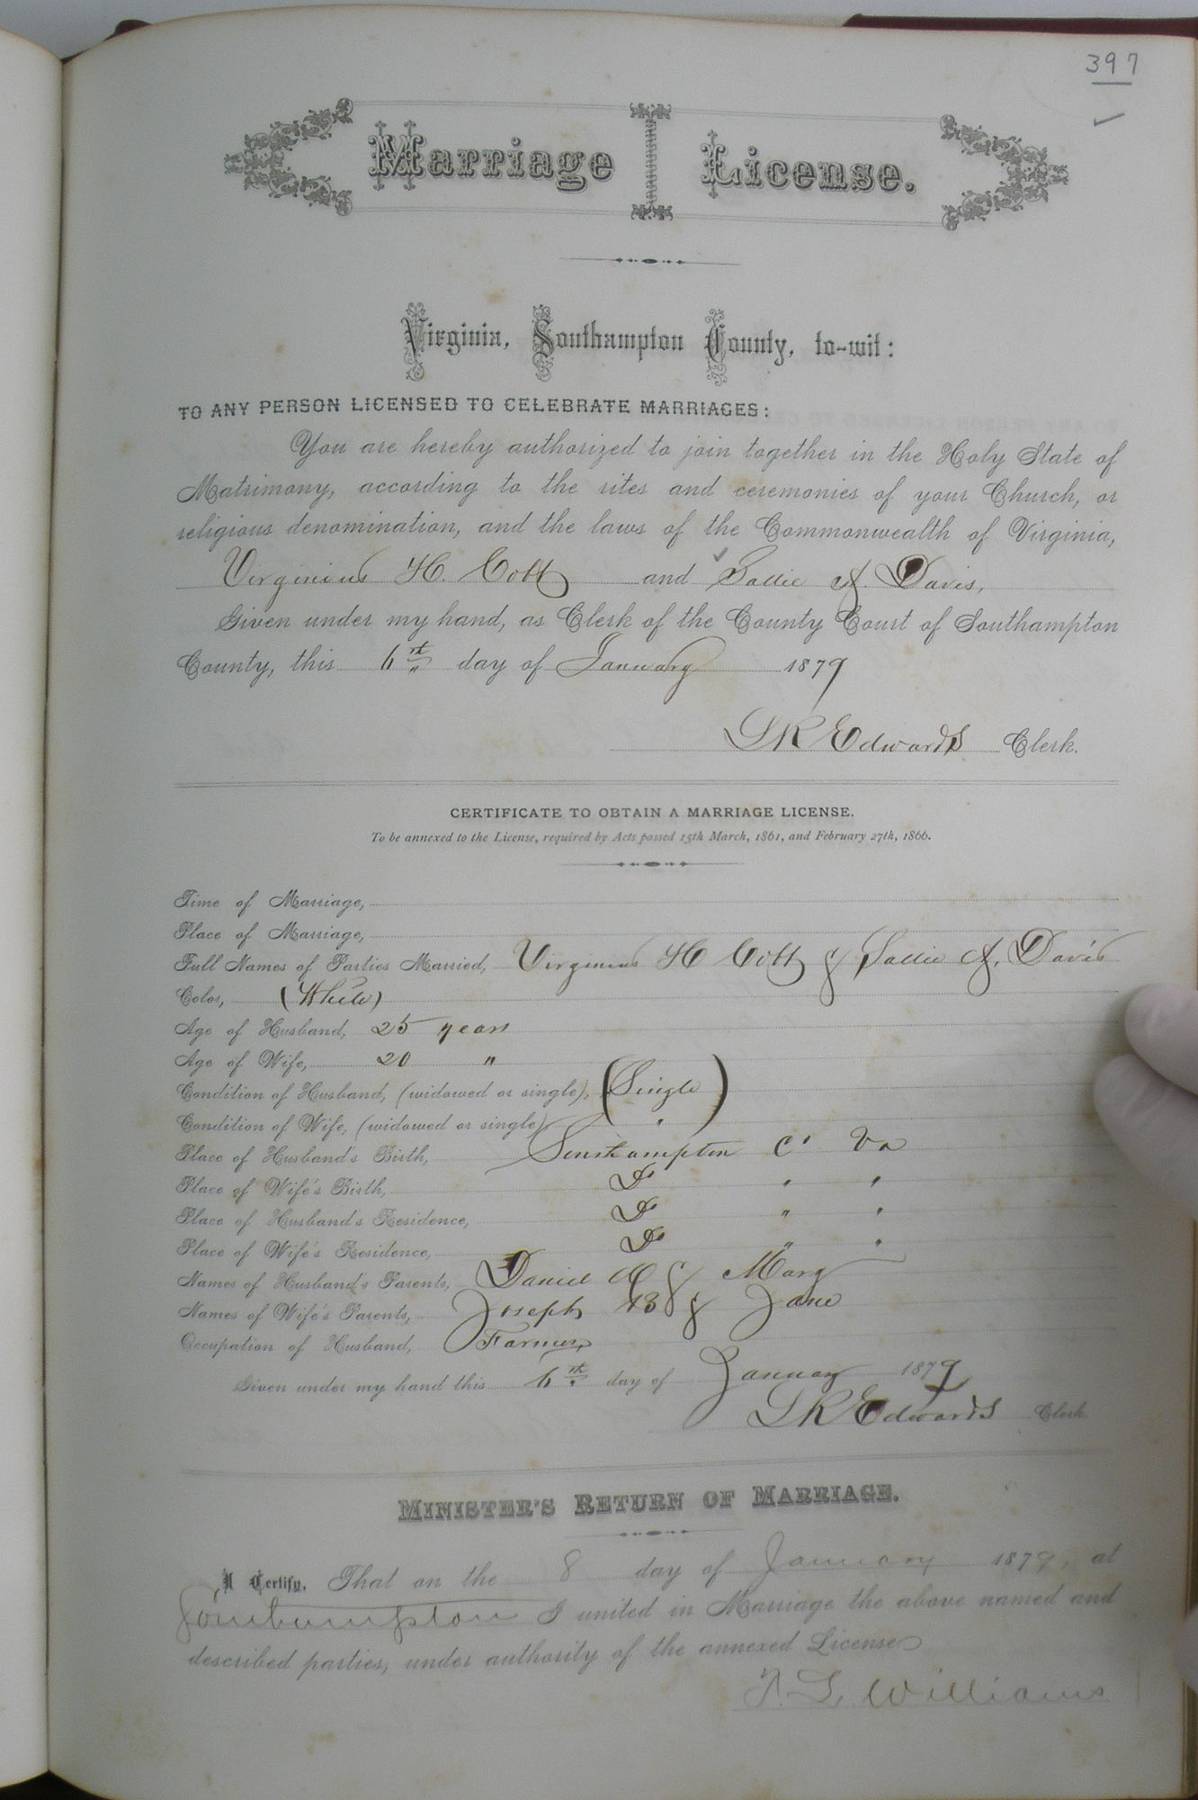 397
Marriage License.
Virginia, Southampton County, to-wit:
TO ANY PERSON LICENSED TO CELEBRATE MARRIAGES:
You are hereby authorized to join together in the Holy State of
Matrimony, according to the rites and ceremonies of your Church, or
religious denomination, and the laws of the Commonwealth of Virginia,
Virginius H. Cobb and Sallie A. Davis,
Given under my hand, as Clerk of the County Court of Southampton
County, this 6th day of January 1879
L R Edwards Clerk.
CERTIFICATE TO OBTAIN A MARRIAGE LICENSE.
To be annexed to the License, required by Acts passed 15th March, 1861, and February 27th, 1866.
Time of Marriage,
Place of Marriage,
Full Names of Parties Married, Virginius H Cobb & Sallie A. Davis
Color, (White)
Age of Husband, 25 years
Age of Wife, 20 "
Condition of Husband, (widowed or single), (Single)
Condition of Wife, (widowed or single) "
Place of Husband's Birth, Southampton Co Va
Place of Wife's Birth, Do " "
Place of Husband's Residence, Do " "
Place of Wife's Residence, Do " "
Names of Husband's Parents, Daniel & Mary
Names of Wife's Parents, Joseph B & Jane
Occupation of Husband, Farmer
Given under my hand this 6th day of January 1879
L R Edwards Clerk
MINISTER'S RETURN OF MARRIAGE.
I Certify, That on the 8 day of January 1879, at
Southampton I united in Marriage the above named and
described parties, under authority of the annexed License
Williams